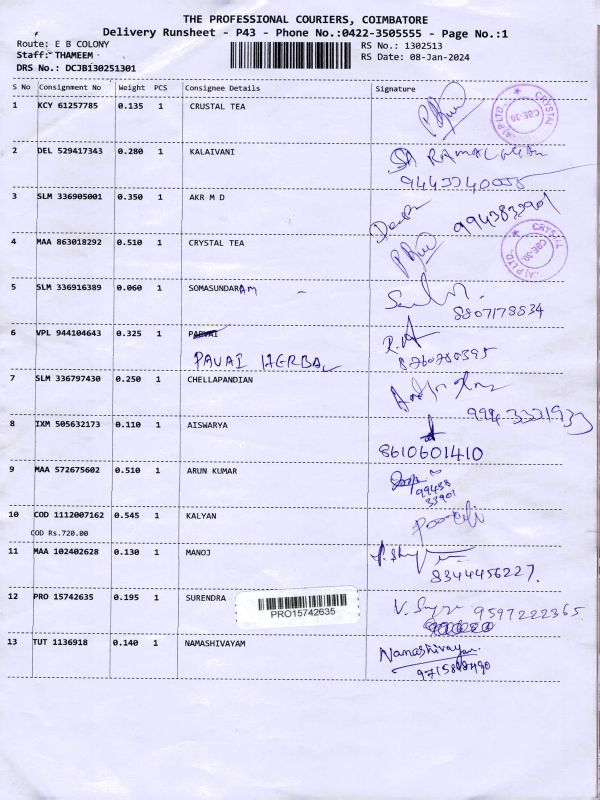 THE PROFESSIONAL COURIERS, COIMBATORE
Delivery Runsheet - P43 - Phone No.:0422-3505555 - Page No.:1
Route: E B COLONY
RS No.: 1302513
Staff: THAMEEM
RS Date: 08-Jan-2024
DRS No.: DCJB130251301
S No Consignment No Weight PCS Consignee Details Signature
1 KCY 61257785 0.135 1 CRUSTAL TEA
CRYSTAL
CBE-30.
(A) P LTD.
2 DEL 529417343 0.280 1 KALAIVANI
3 SLM 336905001 0.350 1 AKR M D
9943833901
4 MAA 863018292 0.510 1 CRYSTAL TEA
CRYSTAL
CBE-30.
(A) P LTD.
5 SLM 336916389 0.060 1 SOMASUNDARAM
8807178834
6 VPL 944104643 0.325 1
PAVAI HERBAL
8760780395
7 SLM 336797430 0.250 1 CHELLAPANDIAN
8 IXM 505632173 0.110 1 AISWARYA
8610601410
9 MAA 572675602 0.510 1 ARUN KUMAR
99438
33901
10 COD 1112007162 0.545 1 KALYAN
COD Rs.720.00
11 MAA 102402628 0.130 1 MANOJ
8344456227.
12 PRO 15742635 0.195 1 SURENDRA
PRO15742635
9597222365
13 TUT 1136918 0.140 1 NAMASHIVAYAM
Namashivayam